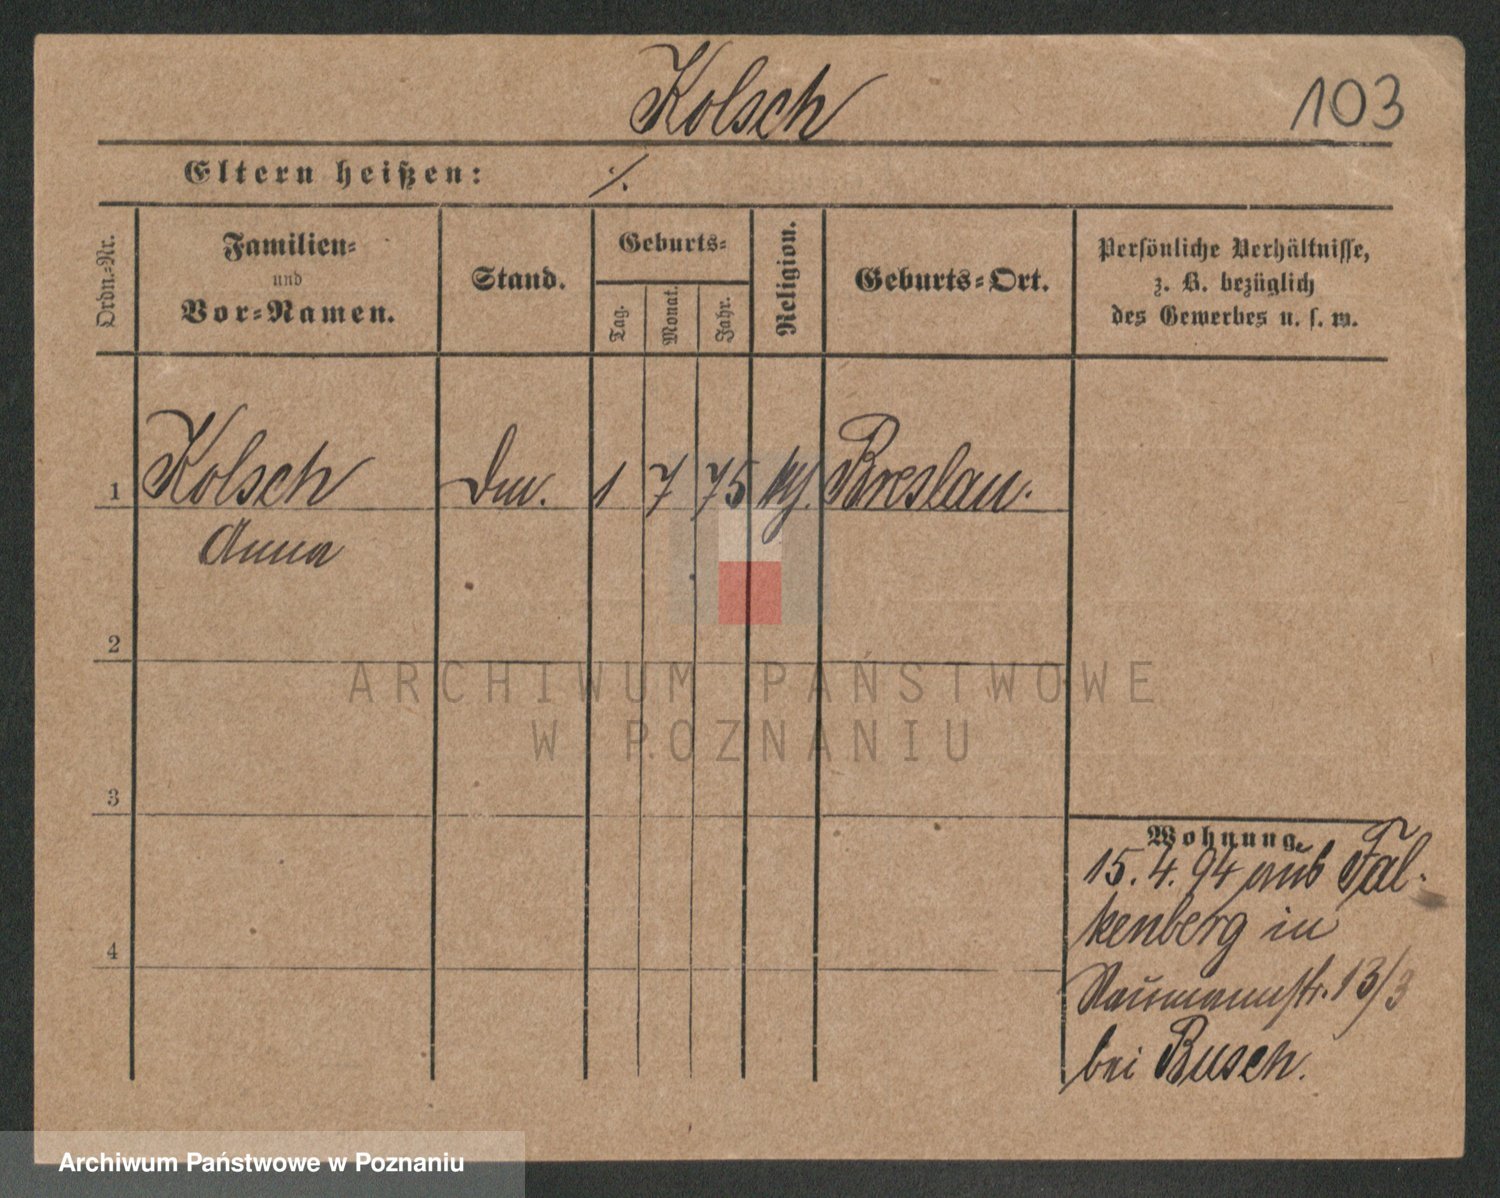 Kolsch
103
Eltern heißen: ·/.
Ordn.-Nr.
Familien-
und
Vor-Namen.
Stand.
Geburts-
Tag.
Monat.
Jahr.
Religion.
Geburts-Ort.
Persönliche Verhältnisse,
z. B. bezüglich
des Gewerbes u. s. w.
1 Kolsch 1 7 75 Breslau.
Anna
2
3
4
Wohnung.
15. 4. 94 aus Fal-
kenberg in
Naumannstr. 13/3
bei Busch.
ARCHIWUM PAŃSTWOWE
W POZNANIU
Archiwum Państwowe w Poznaniu